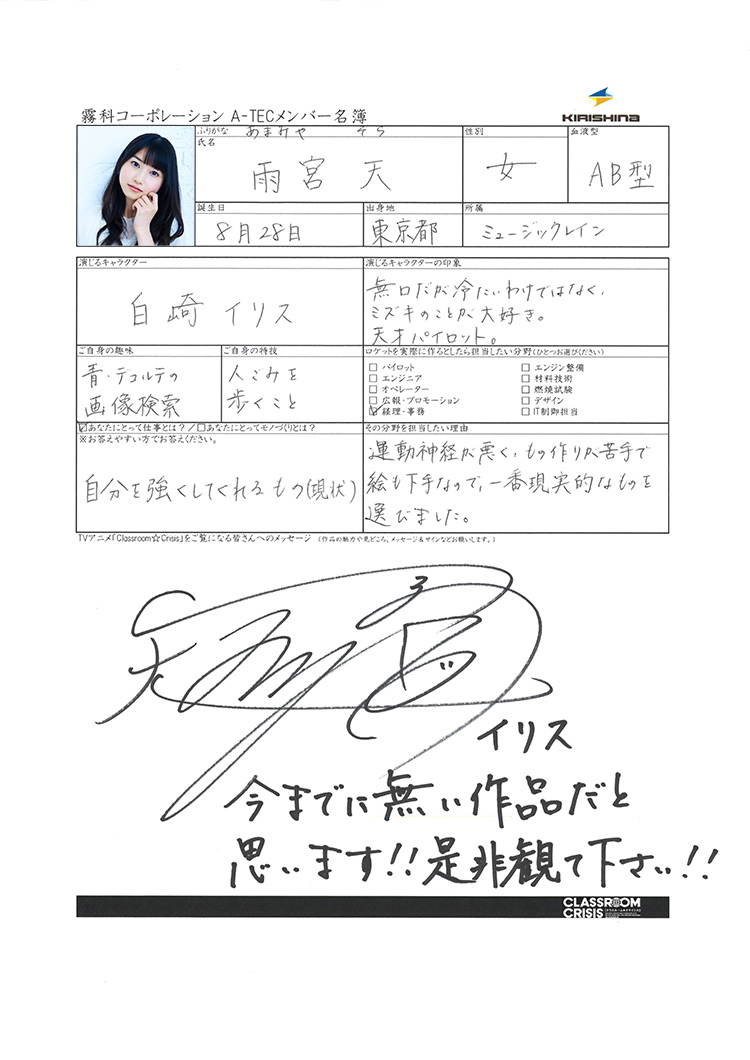 霧科コーポレーション A-TECメンバー名簿
KIRISHINA
ふりがな あまみや そら
氏名
雨宮 天
性別
女
血液型
AB型
誕生日
8月28日
出身地
東京都
所属
ミュージックレイン
演じるキャラクター
白崎 イリス
演じるキャラクターの印象
無口だが冷たいわけではなく、
ミズキのことが大好き。
天才パイロット。
ご自身の趣味
青・デコルテの
画像検索
ご自身の特技
人ごみを
歩くこと
ロケットを実際に作るとしたら担当したい分野(ひとつお選びください)
□ パイロット
□ エンジニア
□ オペレーター
□ 広報・プロモーション
☑ 経理・事務
□ エンジン整備
□ 材料技術
□ 燃焼試験
□ デザイン
□ IT制御担当
☑あなたにとって仕事とは?/□あなたにとってモノづくりとは?
※お答えやすい方でお答えください。
自分を強くしてくれるもの(現状)
その分野を担当したい理由
運動神経が悪く、もの作りが苦手で
絵も下手なので、一番現実的なものを
選びました。
TVアニメ「Classroom☆Crisis」をご覧になる皆さんへのメッセージ (作品の魅力や見どころ、メッセージ&サインなどお願いします。)
イリス
今までに無い作品だと
思います!!是非観て下さい!!
CLASSROOM
CRISIS